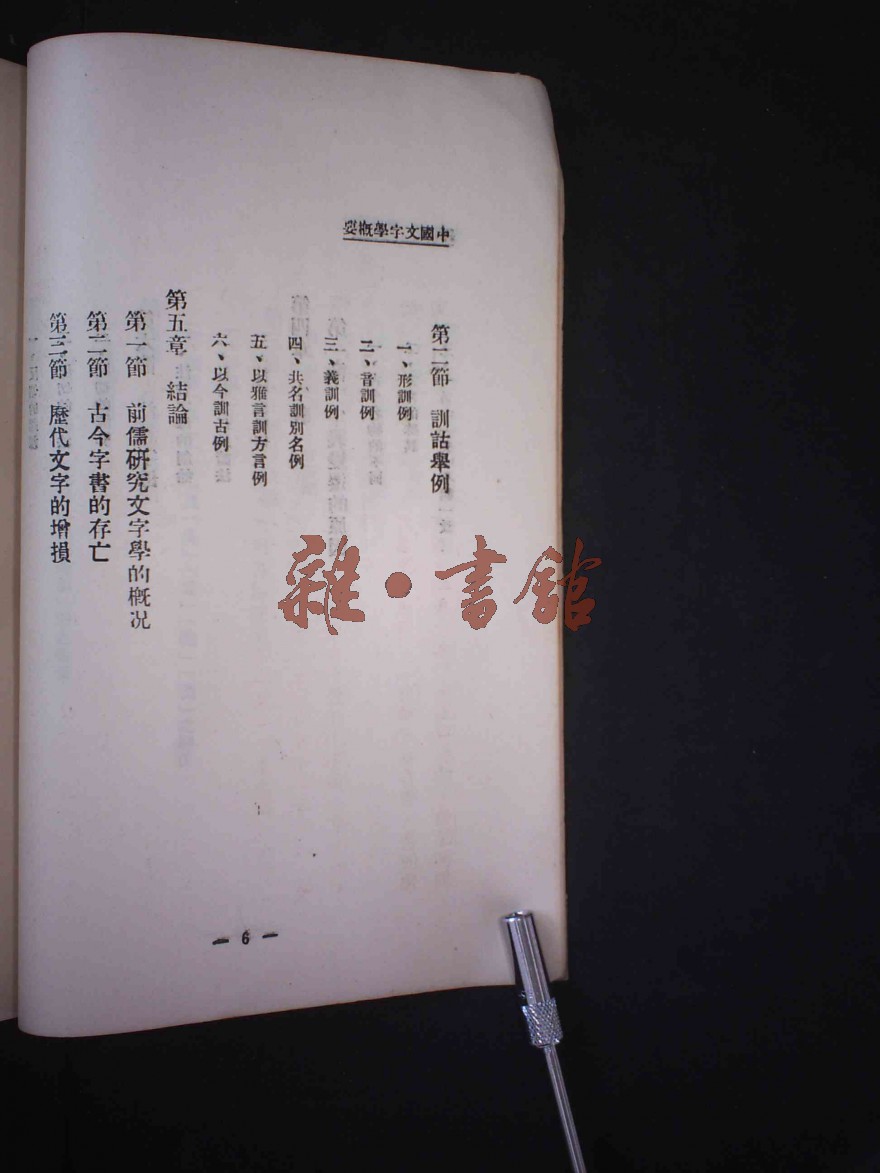 中國文字學概要
第二節 訓詁舉例
一、形訓例
二、音訓例
三、義訓例
四、共名訓別名例
五、以雅言訓方言例
六、以今訓古例
第五章 結論
第一節 前儒研究文字學的概況
第二節 古今字書的存亡
第三節 歷代文字的增損
— 6 —
雜·書館